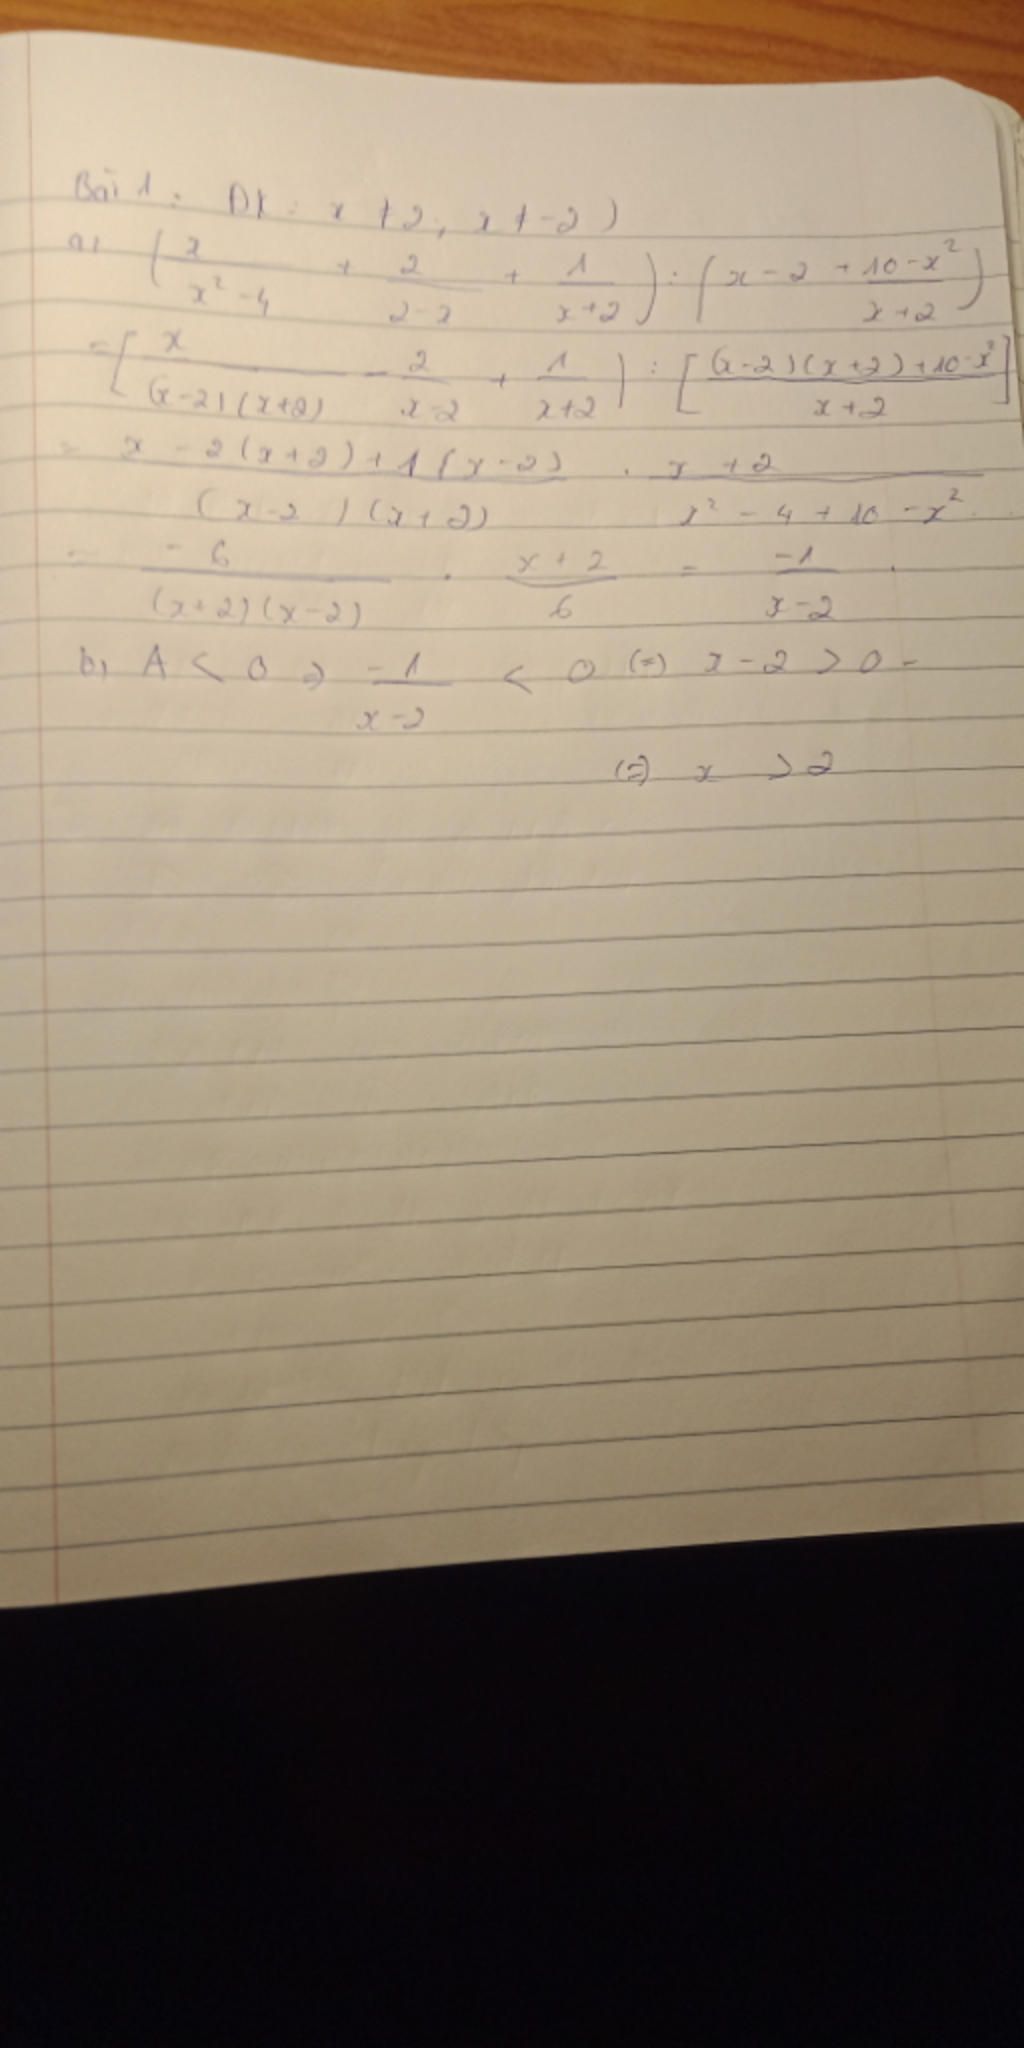 Bài 1: ĐK: x ≠ 2; x ≠ -2)
a) (x/(x² - 4) + 2/(2 - x) + 1/(x + 2)) : (x - 2 + (10 - x²)/(x + 2))
= [x/((x - 2)(x + 2)) - 2/(x - 2) + 1/(x + 2)) : [((x - 2)(x + 2) + 10 - x²)/(x + 2)]
= (x - 2(x + 2) + 1(x - 2))/((x - 2)(x + 2)) . (x + 2)/(x² - 4 + 10 - x²)
= -6/((x + 2)(x - 2)) . (x + 2)/6 = -1/(x - 2) .
b, A < 0 ⇒ -1/(x - 2) < 0 (=) x - 2 > 0 -
(=) x > 2